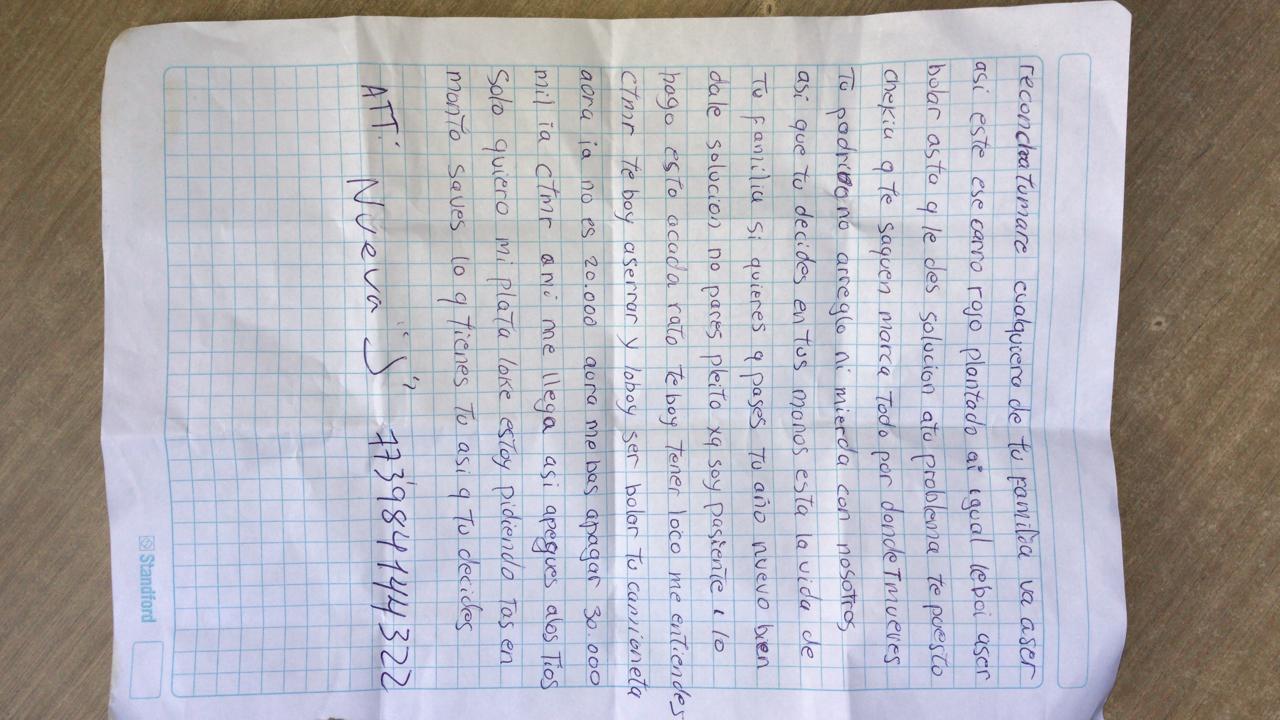 reconchatumare cualquiera de tu familia va aser
asi este ese carro rojo plantado ai igual leboi aser
bolar asta q le des solucion atu problema te puesto
chekia q te saquen marca todo por donde Tmueves
Tu padrino no arreglo ni mierda con nosotros
asi que tu decides en tus manos esta la vida de
Tu familia si quieres q pases tu año nuevo bien
dale solucion no pares pleito xq soy pasiente i lo
hago esto acada rato te boy tener loco me entiendes
ctmr te boy aserrar y loboy ser bolar tu camioneta
aora ia no es 20.000 aora me bas apagar 30.000
mil ia ctmr ami me llega asi apegues alos Tios
Solo quiero mi plata loke estoy pidiendo Tas en
manto saves lo q tienes tu asi q tu decides
ATT: Nueva "J" 773984144322
Standford